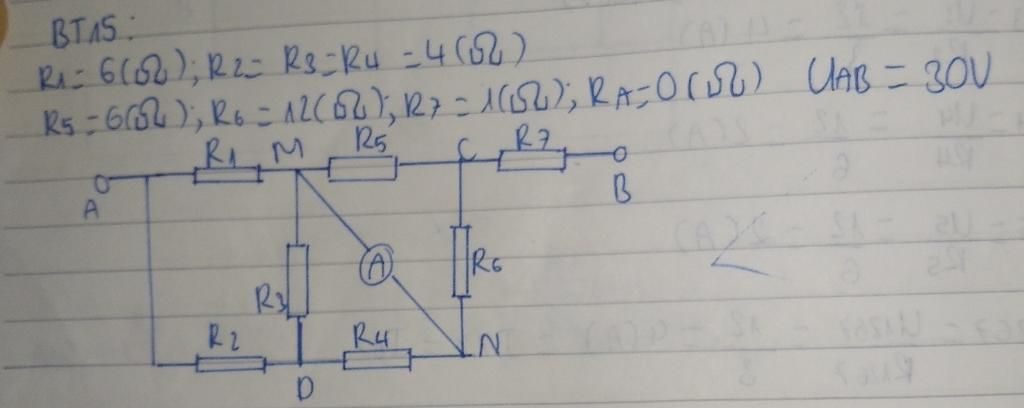 BT15:
R1 = 6(Ω); R2 = R3 = R4 = 4(Ω)
R5 = 6(Ω); R6 = 12(Ω); R7 = 1(Ω); RA = 0(Ω) UAB = 30V
R1 M R5 C R7
A B
A
R3 R6
R2 R4 N
D